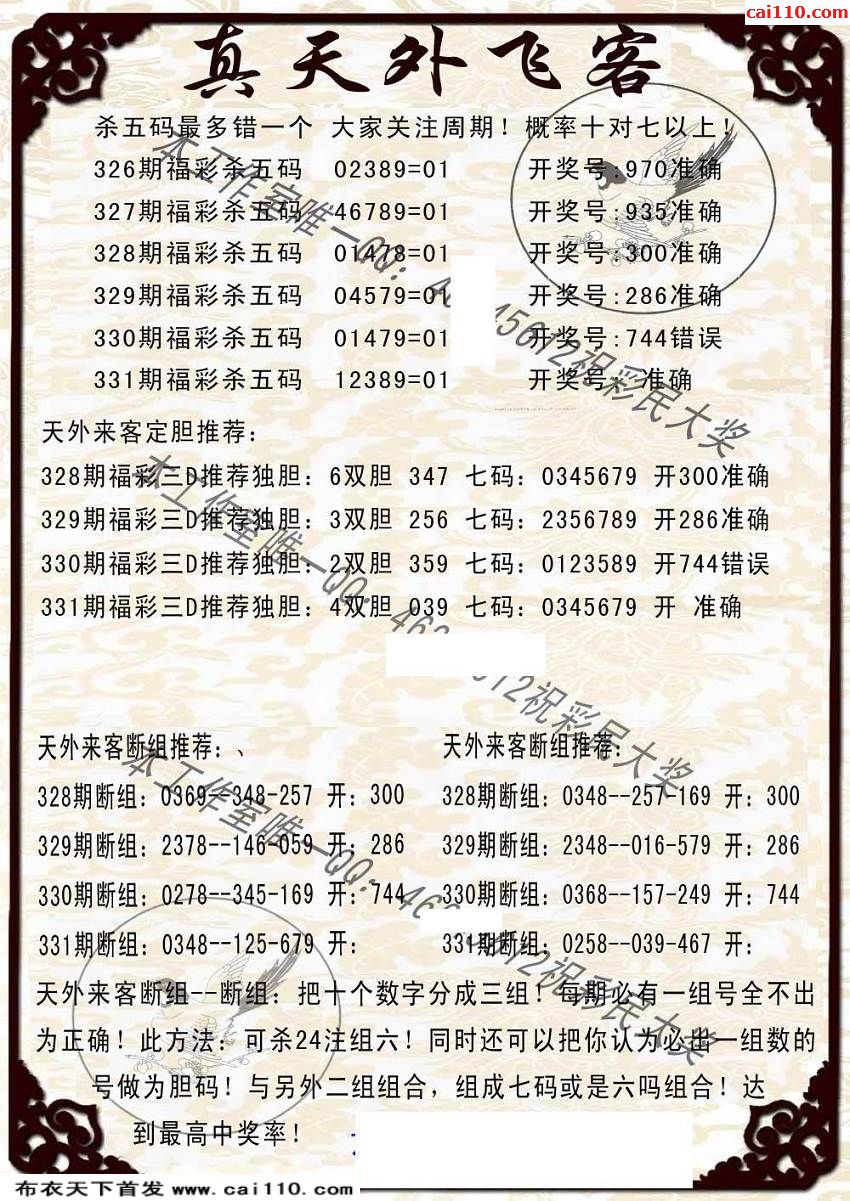 cai110.com
真天外飞客
杀五码最多错一个 大家关注周期！概率十对七以上！
326期福彩杀五码 02389=01 开奖号:970准确
327期福彩杀五码 46789=01 开奖号:935准确
328期福彩杀五码 01478=01 开奖号:300准确
329期福彩杀五码 04579=01 开奖号:286准确
330期福彩杀五码 01479=01 开奖号:744错误
331期福彩杀五码 12389=01 开奖号: 准确
天外来客定胆推荐：
328期福彩三D推荐独胆：6双胆 347 七码：0345679 开300准确
329期福彩三D推荐独胆：3双胆 256 七码：2356789 开286准确
330期福彩三D推荐独胆：2双胆 359 七码：0123589 开744错误
331期福彩三D推荐独胆：4双胆 039 七码：0345679 开 准确
天外来客断组推荐：、 天外来客断组推荐：
328期断组：0369--348-257 开：300 328期断组：0348--257-169 开：300
329期断组：2378--146-059 开：286 329期断组：2348--016-579 开：286
330期断组：0278--345-169 开：744 330期断组：0368--157-249 开：744
331期断组：0348--125-679 开： 331期断组：0258--039-467 开：
天外来客断组--断组：把十个数字分成三组！每期必有一组号全不出
为正确！此方法：可杀24注组六！同时还可以把你认为必出一组数的
号做为胆码！与另外二组组合，组成七码或是六吗组合！达
到最高中奖率！
本工作室唯一QQ：46 45612祝彩民大奖
本工作室唯一QQ：46 612祝彩民大奖
本工作室唯一QQ：46 5612祝彩民大奖
布衣天下首发 www.cai110.com